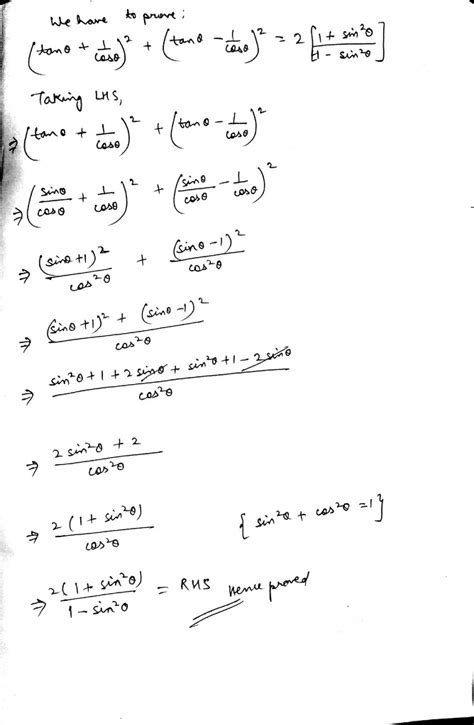 We have to prove:
(tanθ + 1/cosθ)² + (tanθ - 1/cosθ)² = 2 [1 + sin²θ / 1 - sin²θ]
Taking LHS,
⇒ (tanθ + 1/cosθ)² + (tanθ - 1/cosθ)²
⇒ (sinθ/cosθ + 1/cosθ)² + (sinθ/cosθ - 1/cosθ)²
⇒ (sinθ+1)²/cos²θ + (sinθ-1)²/cos²θ
⇒ (sinθ+1)² + (sinθ-1)² / cos²θ
⇒ sin²θ+1+2sinθ + sin²θ+1-2sinθ / cos²θ
⇒ 2sin²θ + 2 / cos²θ
⇒ 2(1+sin²θ) / cos²θ {sin²θ + cos²θ = 1}
⇒ 2(1+sin²θ) / 1-sin²θ = RHS Hence proved